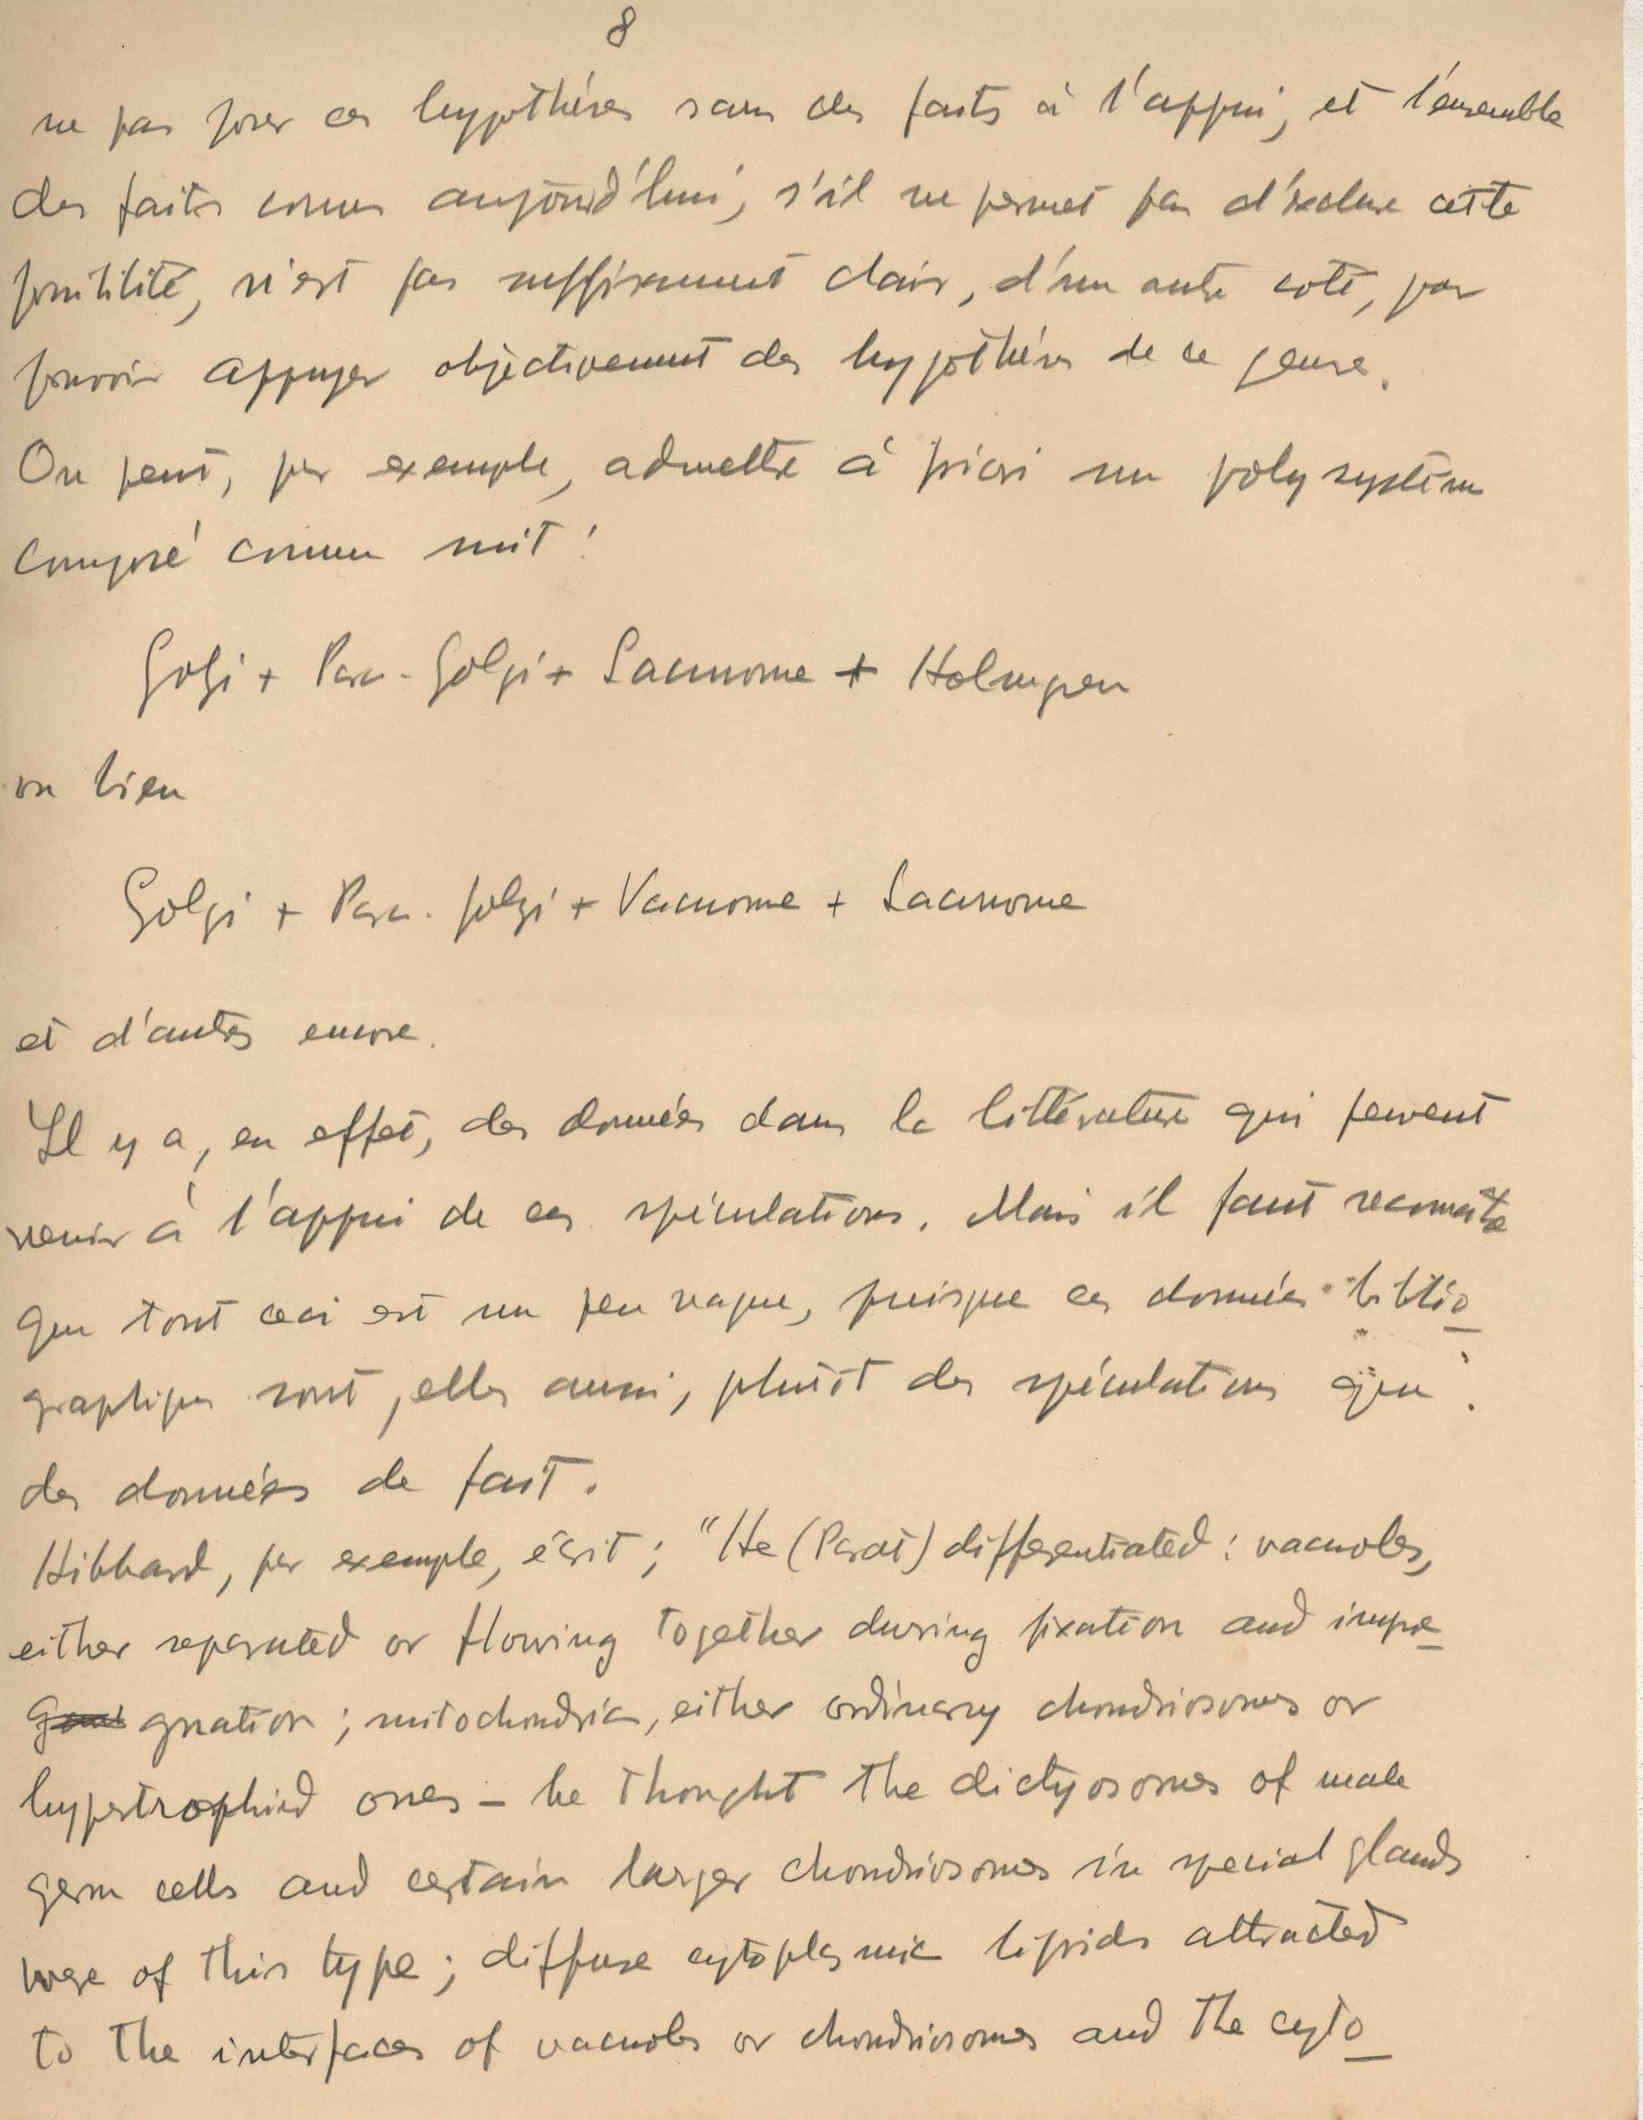 8
ne pas poser ces hypothéses sans des faits à l'appui, et l'ensemble
des faits connus aujourd'hui, s'il ne permet pas d'éxclure cette
possibilité, n'est pas suffisamment clair, d'un autre coté, pour
pouvoir appuyer objectivement des hypothéses de ce genre.
On peut, par exemple, admettre à priori un polysystème
composé comme suit :
Golgi + Para-Golgi + Lacunome + Holmgren
ou bien
Golgi + Para-golgi + Vacuome + Lacunome
et d'autres encore.
Il y a, en effet, des données dans la littérature qui peuvent
venir à l'appui de ces spéculations. Mais il faut reconnaître
que tout ceci est un peu vague, puisque ces données biblio
graphiques sont, elles aussi, plutôt des spéculations que
des données de fait.
Hibbard, par exemple, écrit ; "He (Parat) differentiated : vacuoles,
either separated or flowing together during fixation and impre
gnation ; mitochondria, either ordinary chondriosomes or
hypertrophied ones - he thought the dictyosomes of male
germ cells and certain larger chondriosomes in special glands
were of this type ; diffuse cytoplasmic lipids attracted
to the interfaces of vacuoles or chondriosomes and the cyto